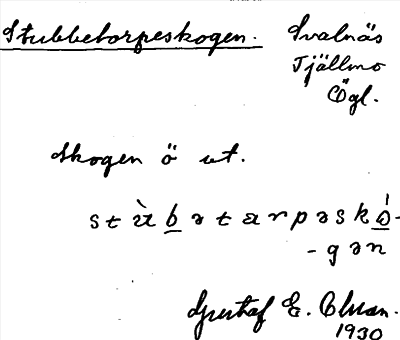 Stubbetorpeskogen. Svalnäs
Tjällmo
Ögl.
Skogen ö ut.
stùbətarpəskó-
-gən
Gustaf E. Olsson.
1930